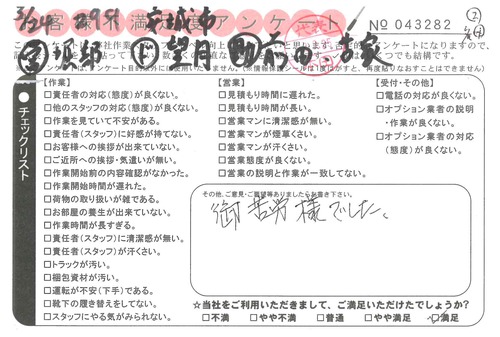 3/24 2951 安城市
お客様満足度アンケート
No 043282 ②
望月
【作業】
□責任者の対応(態度)が良くない。
□他のスタッフの対応(態度)が良くない。
□作業を見ていて不安がある。
□責任者(スタッフ)に好感が持てない。
□お客様への挨拶が出来ていない。
□ご近所への挨拶・気遣いが無い。
□作業開始前の内容確認がなかった。
□作業開始時間が遅れた。
□荷物の取り扱いが雑である。
□お部屋の養生が出来ていない。
□作業時間が長すぎる。
□責任者(スタッフ)に清潔感が無い。
□責任者(スタッフ)が汗くさい。
□トラックが汚い。
□梱包資材が汚い。
□運転が不安(下手)である。
□靴下の履き替えをしてない。
□スタッフにやる気がみられない。
【営業】
□見積もり時間に遅れた。
□見積もり時間が長い。
□営業マンに清潔感が無い。
□営業マンが煙草くさい。
□営業マンが汗くさい。
□営業態度が良くない。
□営業の説明と作業が一致してない。
【受付・その他】
□電話の対応が良くない。
□オプション業者の説明
・作業が良くない。
□オプション業者の対応
(態度)が良くない。
●チェックリスト
その他、ご意見・ご要望等ありましたらお書き下さい。
御苦労様でした。
☆当社をご利用いただきまして、ご満足いただけたでしょうか?
□不満 □やや不満 □普通 □やや満足 ☑満足